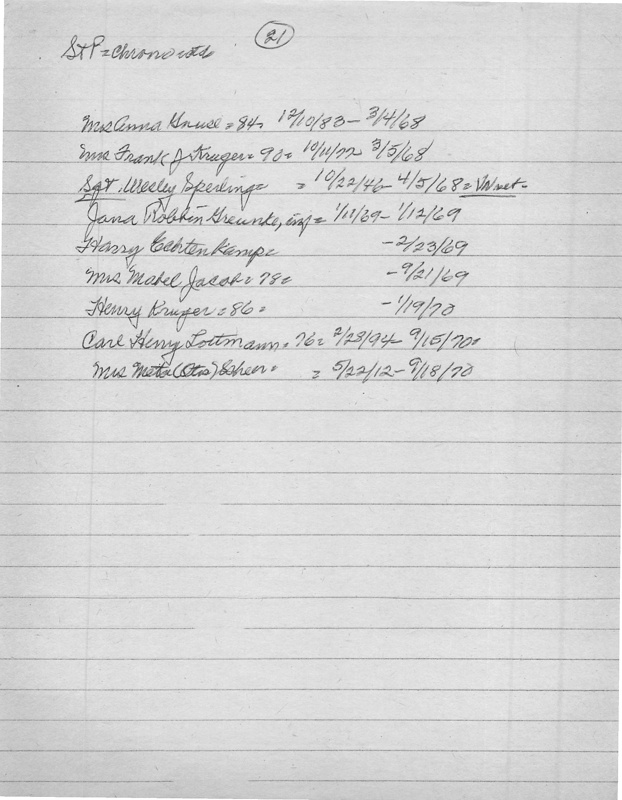 21
St P = Chrono
Mrs Anna Gruse = 84, 12/10/83 - 3/4/68
Mrs Frank J Kruger = 90 = 10/11/77 - 3/5/68
Sgt. Wesley Sperling = = 10/22/46 - 4/5/68 = VN vet.
Jana Robbin Greunke, inf = 1/11/69 - 1/12/69
Harry Echtenkamp = - 2/23/69
Mrs Mabel Jacob = 78 = - 9/21/69
Henry Kruger = 86 = - 1/19/70
Carl Henry Lottmann = 76 = 2/28/94 - 9/15/70 =
Mrs Meta (Otto) Scheer = = 5/22/12 - 9/18/70